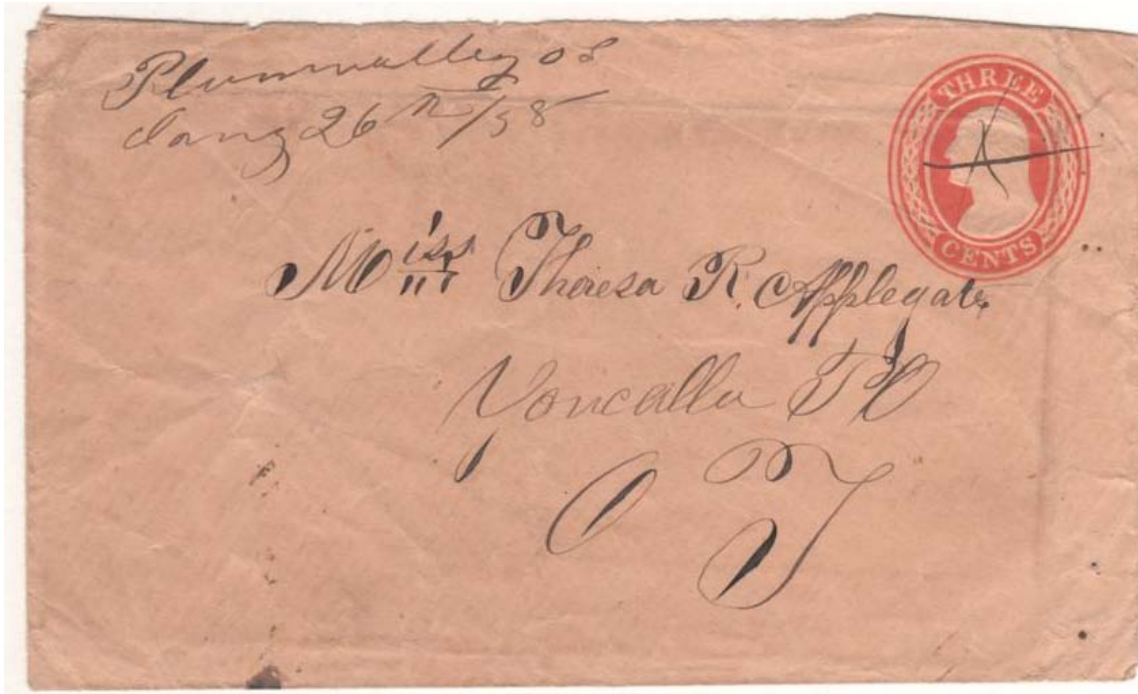 Plumvalley O T
Jany 26th/58
THREE
CENTS
Miss Theresa R. Applegate
Yoncalla PO
O T